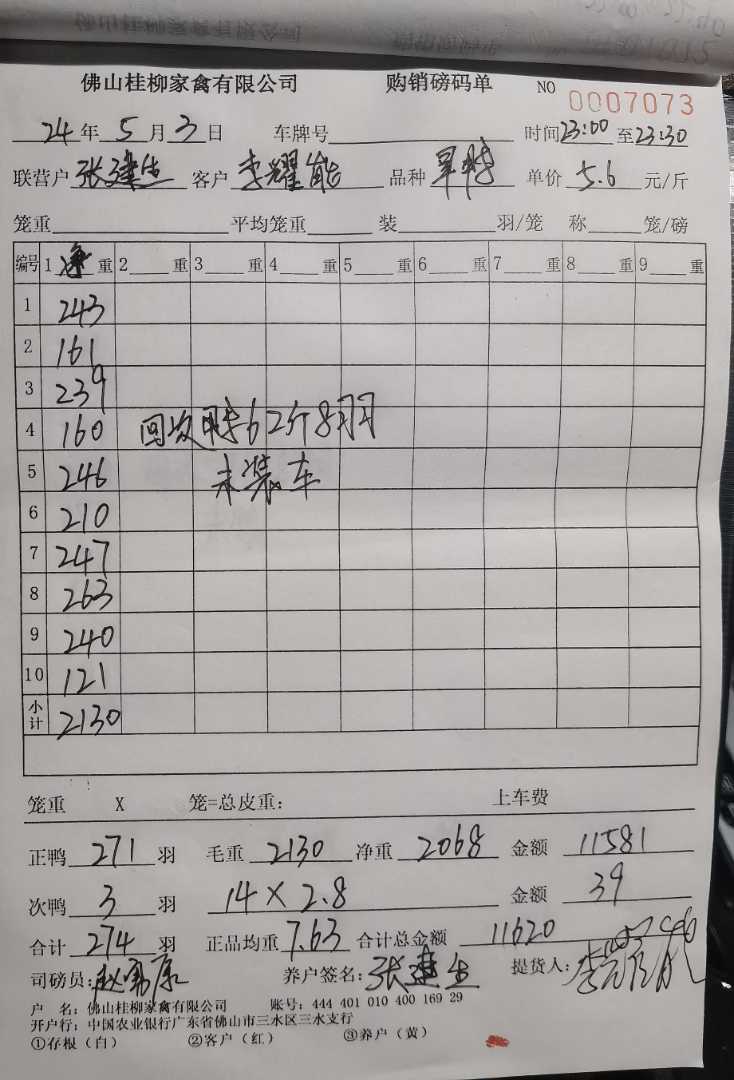 佛山桂柳家禽有限公司 购销磅码单 NO 0007073
24年5月3日 车牌号 时间23:00至23:30
联营户张建生 客户李耀能 品种 单价5.6元/斤
笼重 平均笼重 装 羽/笼 称 笼/磅
编号 1净重 2 重 3 重 4 重 5 重 6 重 7 重 8 重 9 重
1 243
2 161
3 239
4 160 回收 62斤8羽
5 246 未装车
6 210
7 247
8 263
9 240
10 121
小计 2130
笼重 X 笼=总皮重: 上车费
正鸭271羽 毛重2130 净重2068 金额11581
次鸭3羽 14×2.8 金额39
合计274羽 正品均重7.63 合计总金额11620
司磅员: 养户签名:张建生 提货人:
户 名: 佛山桂柳家禽有限公司 账号: 444 401 010 400 169 29
开户行: 中国农业银行广东省佛山市三水区三水支行
①存根(白) ②客户(红) ③养户(黄)